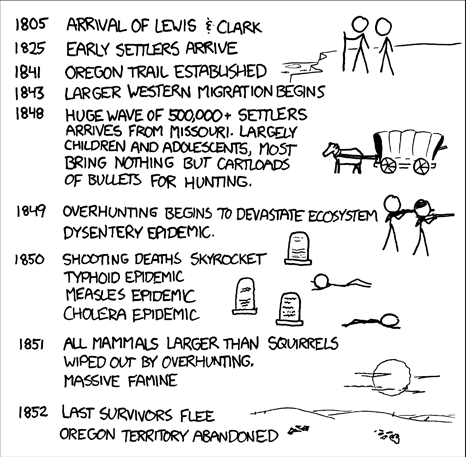 1805 ARRIVAL OF LEWIS & CLARK
1825 EARLY SETTLERS ARRIVE
1841 OREGON TRAIL ESTABLISHED
1843 LARGER WESTERN MIGRATION BEGINS
1848 HUGE WAVE OF 500,000+ SETTLERS
ARRIVES FROM MISSOURI. LARGELY
CHILDREN AND ADOLESCENTS, MOST
BRING NOTHING BUT CARTLOADS
OF BULLETS FOR HUNTING.
1849 OVERHUNTING BEGINS TO DEVASTATE ECOSYSTEM
DYSENTERY EPIDEMIC.
1850 SHOOTING DEATHS SKYROCKET
TYPHOID EPIDEMIC
MEASLES EPIDEMIC
CHOLERA EPIDEMIC
1851 ALL MAMMALS LARGER THAN SQUIRRELS
WIPED OUT BY OVERHUNTING.
MASSIVE FAMINE
1852 LAST SURVIVORS FLEE
OREGON TERRITORY ABANDONED